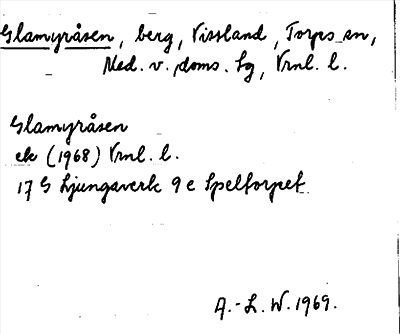 Glamyråsen, berg, Vissland, Torps sn,
Med. v. doms. Lg, Vrnl. l.
Glamyråsen
ek (1968) Vrnl. l.
17 G Ljungaverk 9 e Speltorpet
A.-L. W. 1969.